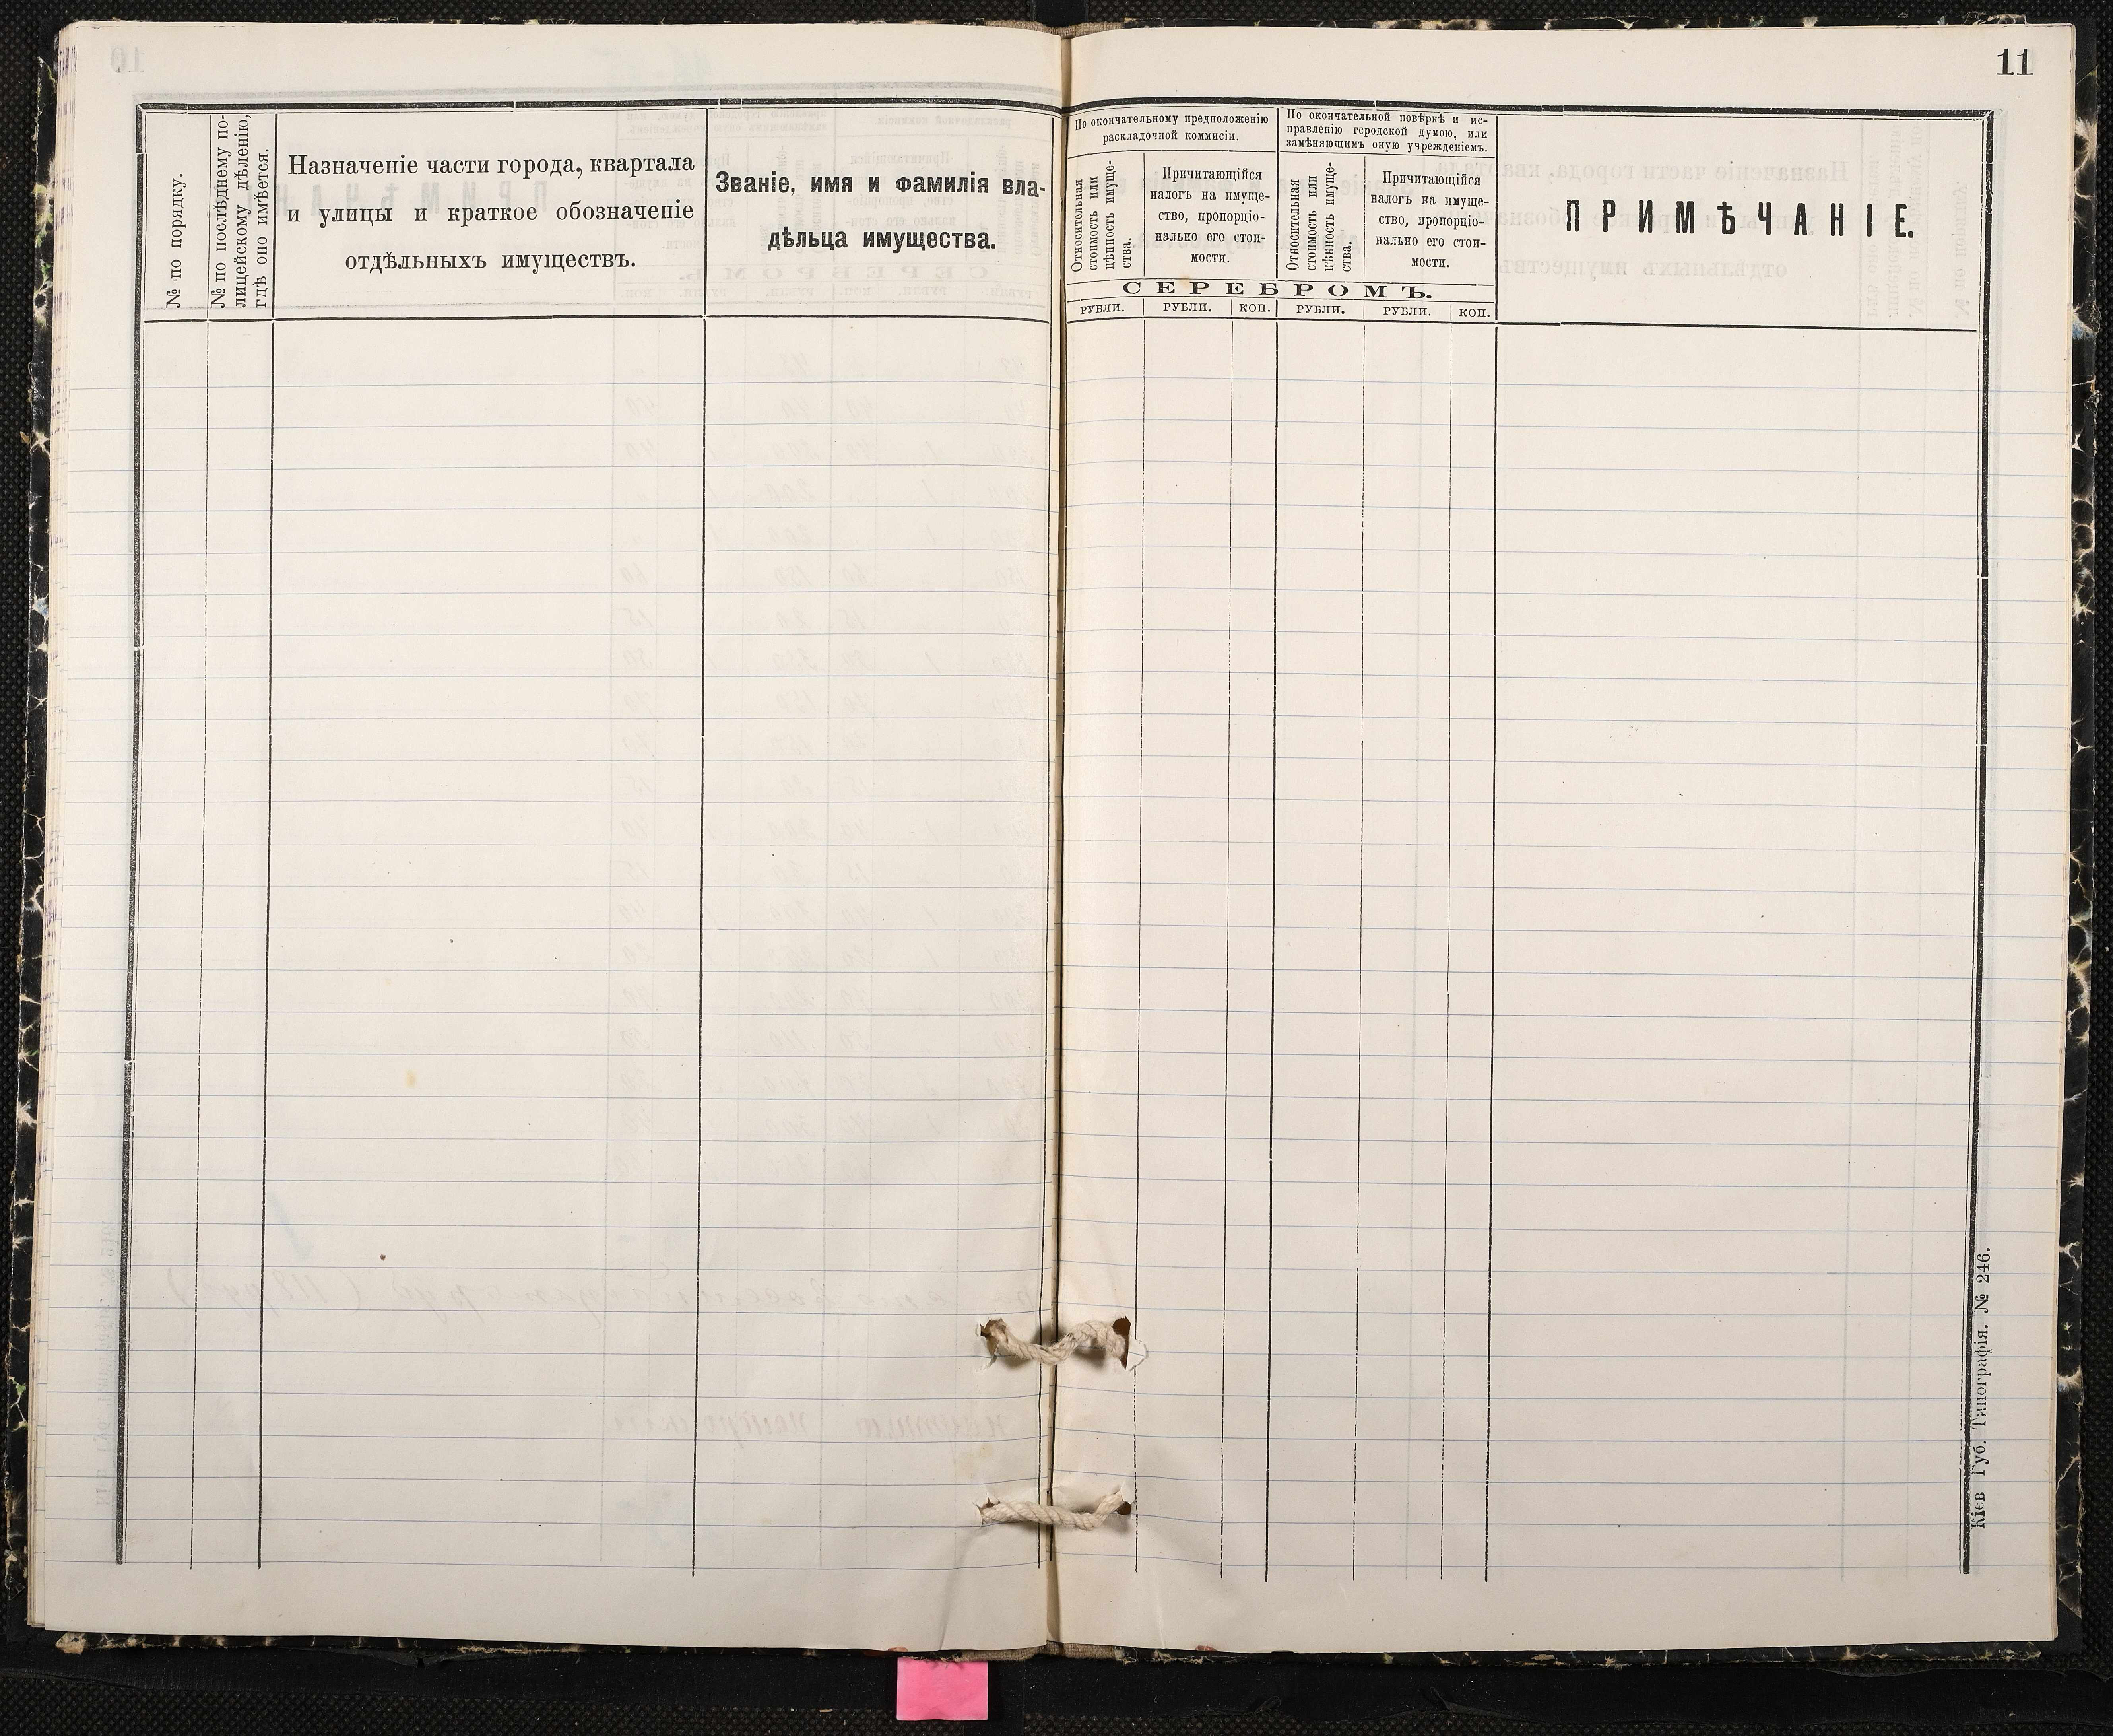 11
№ по порядку.
№ по послѣднему по-
лицейскому дѣленію,
гдѣ оно имѣется.
Назначеніе части города, квартала
и улицы и краткое обозначеніе
отдѣльныхъ имуществъ.
Званіе, имя и фамилія вла-
дѣльца имущества.
По окончательному предположенію
раскладочной коммисіи.
Относительная
стоимость или
цѣнность имуще-
ства.
Причитающійся
налогъ на имуще-
ство, пропорціо-
нально его стои-
мости.
По окончательной повѣркѣ и ис-
правленію городской думою, или
замѣняющимъ оную учрежденіемъ.
Относительная
стоимость или
цѣнность имуще-
ства.
Причитающійся
налогъ на имуще-
ство, пропорціо-
нально его стои-
мости.
СЕРЕБРОМЪ.
РУБЛИ. РУБЛИ. КОП. РУБЛИ. РУБЛИ. КОП.
ПРИМѢЧАНІЕ.
Кіев Губ. Типографія. № 246.